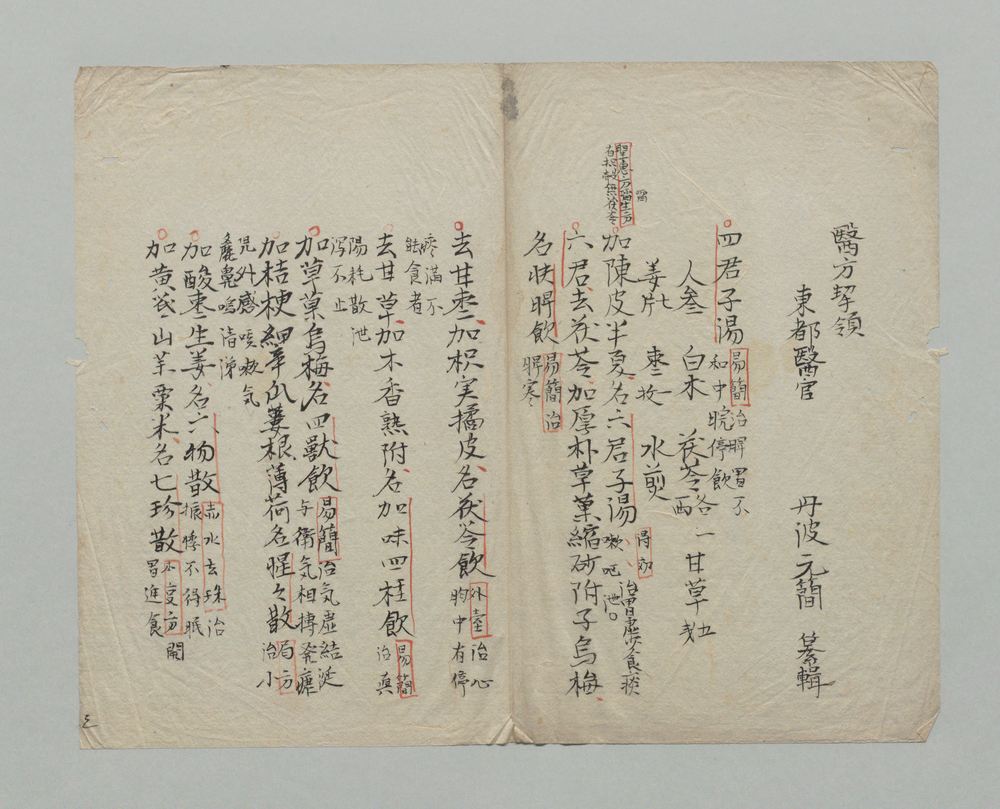 醫方挈領
東都醫官 丹波元簡 纂輯
四君子湯 易簡 治脾胃不
和中脘停飲
人參 白朮 茯苓各一兩 甘草五戔
姜七片 棗一枚 水煎
聖惠方 當生方
有枳殼無茯苓
加陳皮半夏名六君子湯 得効 治胃虛少食痰
嗽呕泄
六君去茯苓加厚朴草菓縮砂附子烏梅
名快脾飲 易簡 治
脾寒
去甘棗加枳实橘皮名茯苓飲 外臺 治心
胸中有停
痰滿不
能食者
去甘草加木香熟附名加味四柱飲 易簡
治真
陽耗散泄
泻不止
加草菓烏梅名四獸飲 易簡 治気虛結涎
与衛気相摶発瘧
加桔梗細辛瓜蔞根薄荷名惺々散 局方
治小
児外感咳嗽気
麁鼻嗚清涕
加酸棗生姜名六物散 赤水玄珠 治
振悸不得眠
加黄芪山芋粟米名七珍散 本夏方 開
胃進食